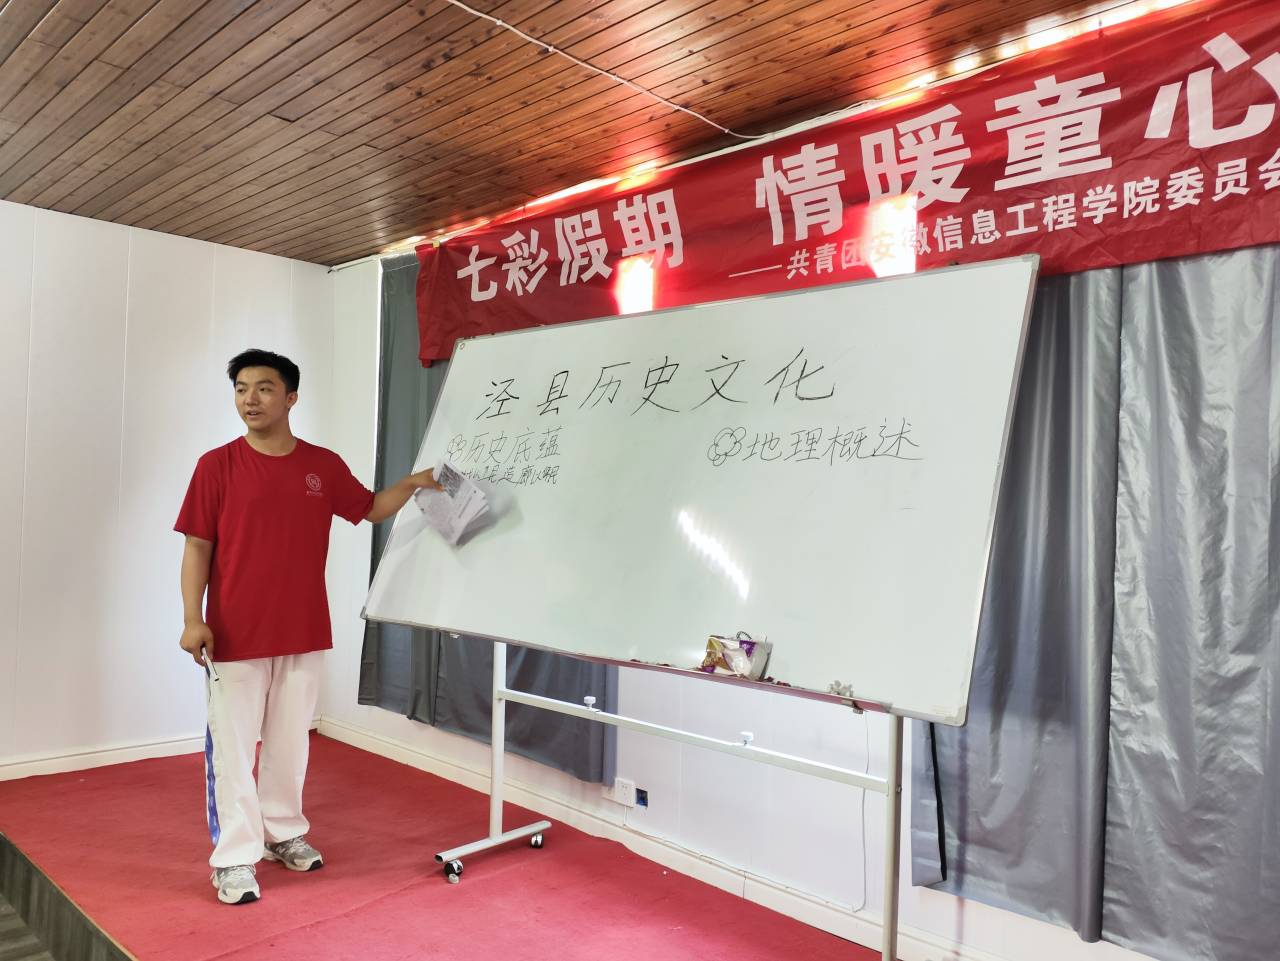 七彩假期 情暖童心
——共青团安徽信息工程学院委员会
泾县历史文化
历史底蕴
地理概述